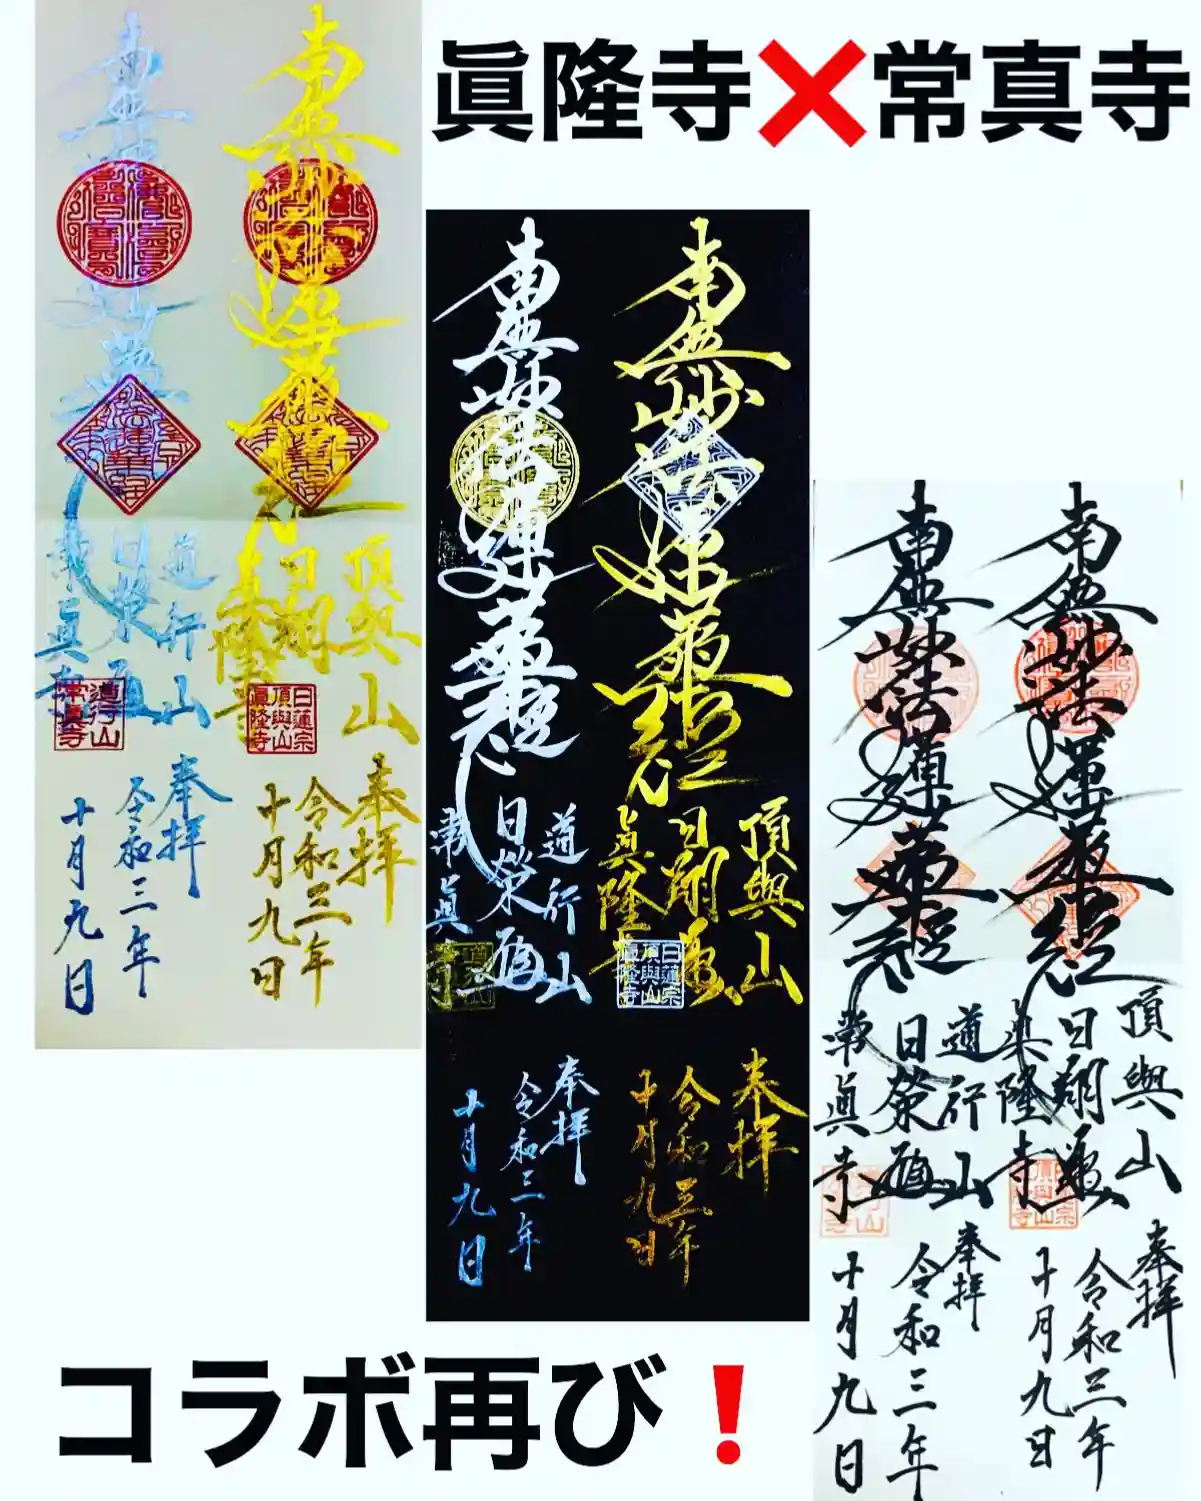 眞隆寺❌常真寺
南無妙法蓮華経
頂與山
日翔
眞隆寺
日蓮宗
頂與山
眞隆寺
奉拝
令和三年
十月九日
南無妙法蓮華経
道行山
日榮
常眞寺
道行山
常眞寺
奉拝
令和三年
十月九日
南無妙法蓮華経
頂與山
日翔
眞隆寺
日蓮宗
頂與山
眞隆寺
奉拝
令和三年
十月九日
南無妙法蓮華経
道行山
日榮
常眞寺
奉拝
令和三年
十月九日
南無妙法蓮華経
頂與山
日翔
眞隆寺
奉拝
令和三年
十月九日
南無妙法蓮華経
道行山
日榮
常眞寺
奉拝
令和三年
十月九日
コラボ再び❗